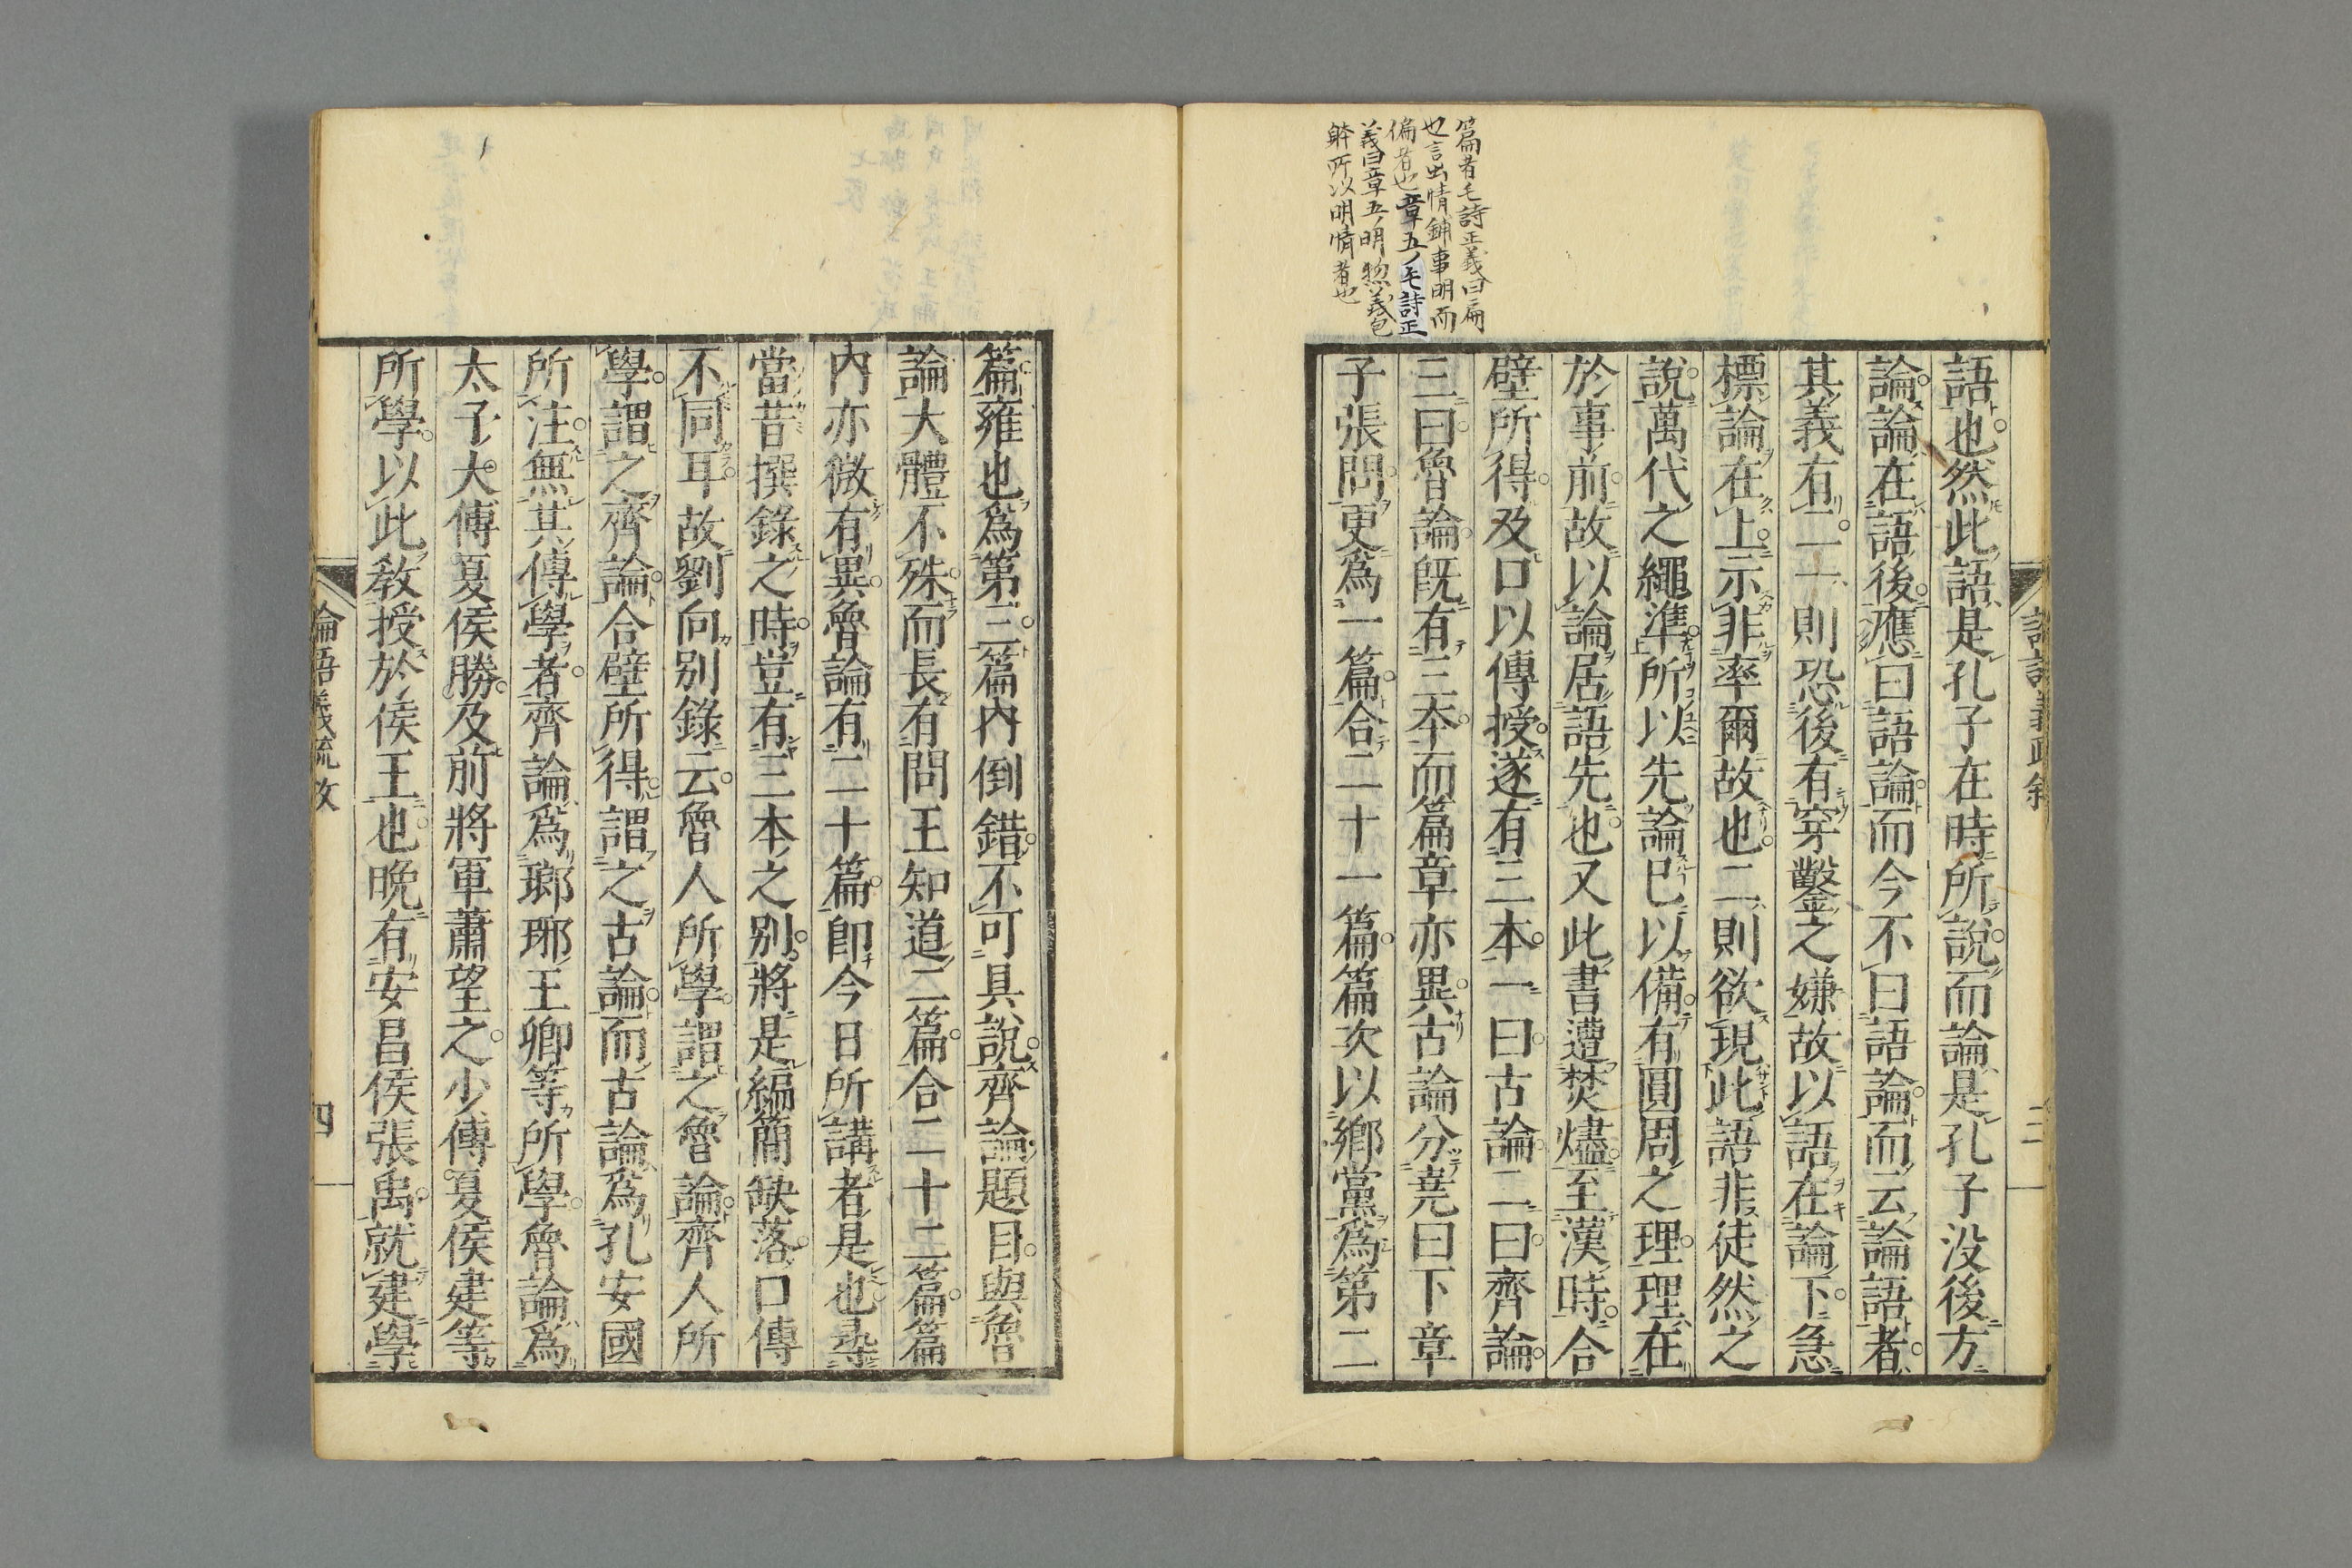 篇者毛詩正義曰扁
也言出情鋪事明而
偏者也章五ノ毛詩正
義曰章五ノ明惣義包
躰所以明情者也
語也然此語是孔子在時所説而論是孔子没後方
論論在語後應曰語論而今不曰語論而云論語者
其義有二一則恐後有穿鑿之嫌故以語在論下急
標論在上示非率爾故也二則欲現此語非徒然之
説萬代之繩準所以先論已以備有圓周之理理在
於事前故以論居語先也又此書遭焚燼至漢時合
壁所得及口以傳授遂有三本一曰古論二曰齊論
三曰魯論既有三本而篇章亦異古論分堯曰下章
子張問更爲一篇合二十一篇篇次以鄉黨爲第二
篇雍也爲第三篇内倒錯不可具説齊論題目與魯
論大體不殊而長有問王知道二篇合二十二篇篇
内亦微有異魯論有二十篇即今日所講者是也尋
當昔撰錄之時豈有三本之別將是編簡缺落口傳
不同耳故劉向別錄云魯人所學謂之魯論齊人所
學謂之齊論合壁所得謂之古論而古論爲孔安國
所注無其傳學者齊論爲瑯琊王卿等所學魯論爲
太子大傅夏侯勝及前將軍蕭望之少傅夏侯建等
所學以此教授於侯王也晩有安昌侯張禹就建學
論語義疏敘
四